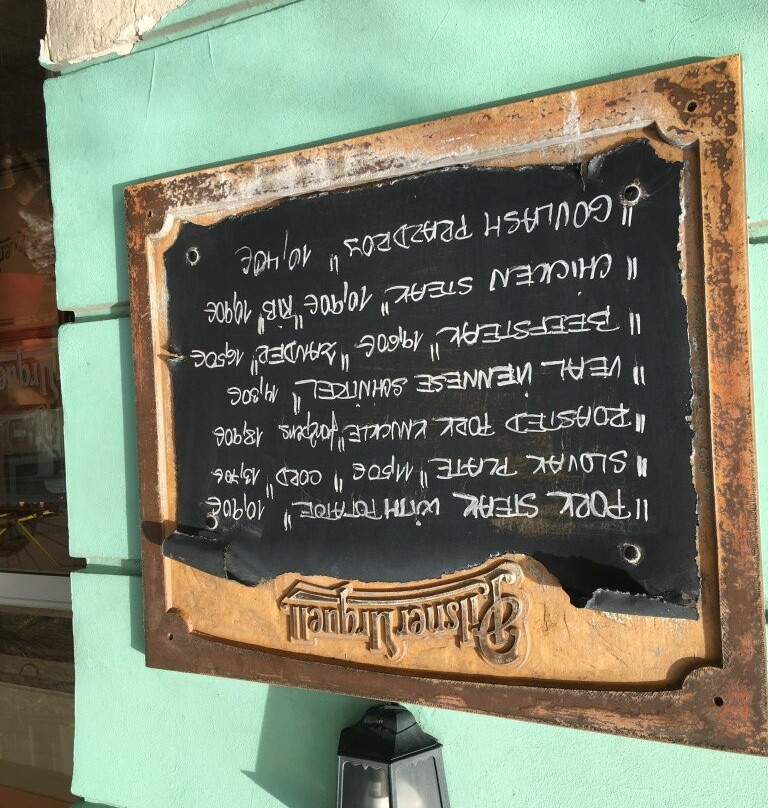 Pilsner Urquell
"PORK STEAK WITH POTATOE" 10,90€
"SLOVAK PLATE" 11,50€ "CORD" 13,70€
"ROASTED PORK KNUCKLE" 18,90€
"VEAL VIENNESE SCHNITZEL" 14,30€
"BEEFSTEAK" 19,60€ "ZANDER" 16,50€
"CHICKEN STEAK" 10,90€ "RIB" 10,90€
"GOULASH PRAZDROJ" 10,40€